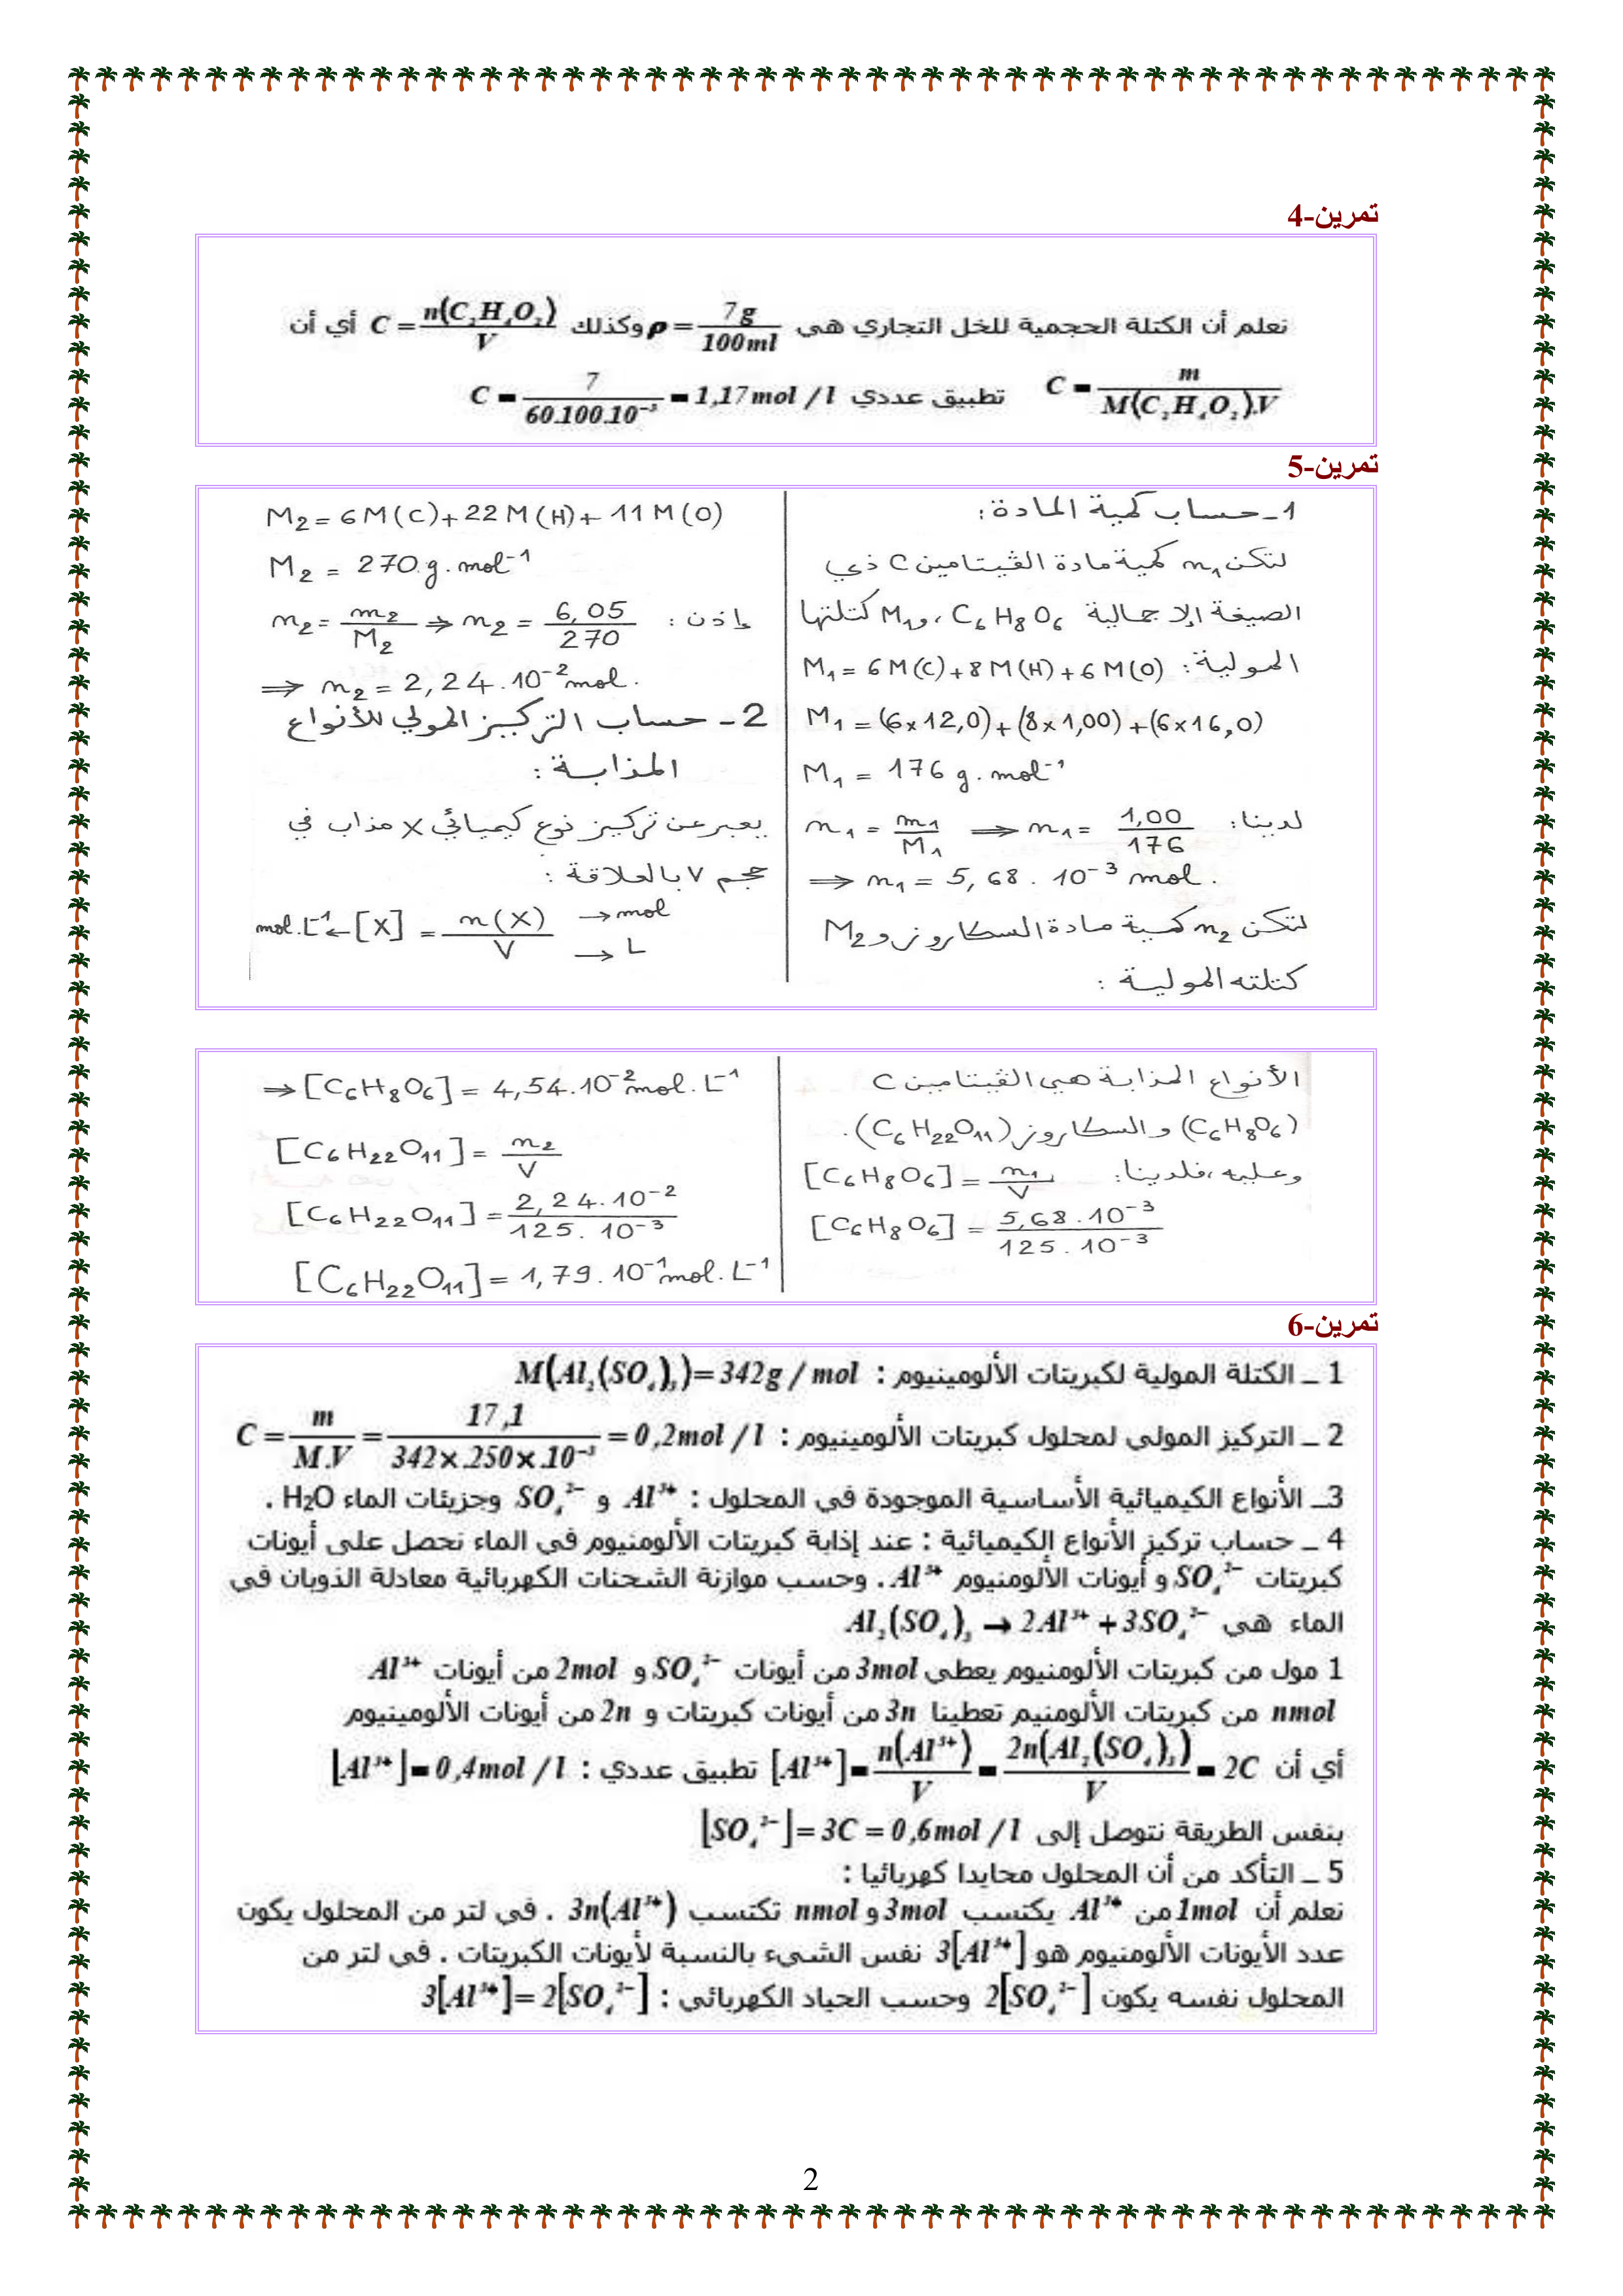 تمرين-4
نعلم أن الكتلة الحجمية للخل التجاري هي ρ = 7g / 100ml وكذلك C = n(C₂H₄O₂) / V أي أن
C = m / M(C₂H₄O₂).V تطبيق عددي C = 7 / 60.100.10⁻³ = 1,17 mol / l
تمرين-5
1- حساب كمية المادة:
لتكن n₁ كمية مادة الڤيتامين C ذي
الصيغة الإجمالية C₆H₈O₆، وM₁ كتلتها
المولية: M₁ = 6M(C)+8M(H)+6M(O)
M₁ = (6×12,0)+(8×1,00)+(6×16,0)
M₁ = 176 g.mol⁻¹
لدينا: n₁ = m₁ / M₁ ⇒ n₁ = 1,00 / 176
⇒ n₁ = 5,68 . 10⁻³ mol.
لتكن n₂ كمية مادة السكاروز وM₂
كتلته المولية :
M₂ = 6M(C)+22M(H)+11M(O)
M₂ = 270.g.mol⁻¹
إذن : n₂ = m₂ / M₂ ⇒ n₂ = 6,05 / 270
⇒ n₂ = 2,24.10⁻² mol.
2- حساب التركيز المولي للأنواع
المذابة :
يعبر عن تركيز نوع كيميائي X مذاب في
حجم V بالعلاقة :
mol.L⁻¹ ← [X] = n(X) / V → mol → L
الأنواع المذابة هي الڤيتامين C
(C₆H₈O₆) والسكاروز (C₆H₂₂O₁₁).
وعليه، فلدينا: [C₆H₈O₆] = n₁ / V
[C₆H₈O₆] = 5,68.10⁻³ / 125.10⁻³
⇒ [C₆H₈O₆] = 4,54.10⁻² mol.L⁻¹
[C₆H₂₂O₁₁] = n₂ / V
[C₆H₂₂O₁₁] = 2,24.10⁻² / 125.10⁻³
[C₆H₂₂O₁₁] = 1,79.10⁻¹ mol.L⁻¹
تمرين-6
1 ــ الكتلة المولية لكبريتات الألومينيوم : M(Al₂(SO₄)₃) = 342g / mol
2 ــ التركيز المولي لمحلول كبريتات الألومينيوم : C = m / M.V = 17,1 / 342×.250×.10⁻³ = 0,2mol / l
3ــ الأنواع الكيميائية الأساسية الموجودة في المحلول : Al³⁺ و SO₄²⁻ وجزيئات الماء H₂O .
4 ــ حساب تركيز الأنواع الكيميائية : عند إذابة كبريتات الألومنيوم في الماء نحصل على أيونات
كبريتات SO₄²⁻ و أيونات الألومنيوم Al³⁺ . وحسب موازنة الشحنات الكهربائية معادلة الذوبان في
الماء هي Al₂(SO₄)₃ → 2Al³⁺ + 3SO₄²⁻
1 مول من كبريتات الألومنيوم يعطي 3mol من أيونات SO₄²⁻ و 2mol من أيونات Al³⁺
nmol من كبريتات الألومنيم تعطينا 3n من أيونات كبريتات و 2n من أيونات الألومينيوم
أي أن [Al³⁺] = n(Al³⁺) / V = 2n(Al₂(SO₄)₃) / V = 2C تطبيق عددي : [Al³⁺] = 0,4mol / l
بنفس الطريقة نتوصل إلى [SO₄²⁻] = 3C = 0,6mol / l
5 ــ التأكد من أن المحلول محايدا كهربائيا :
نعلم أن 1mol من Al³⁺ يكتسب 3mol و nmol تكتسب 3n(Al³⁺) . في لتر من المحلول يكون
عدد الأيونات الألومنيوم هو 3[Al³⁺] نفس الشيء بالنسبة لأيونات الكبريتات . في لتر من
المحلول نفسه يكون 2[SO₄²⁻] وحسب الحياد الكهربائي : 3[Al³⁺] = 2[SO₄²⁻]
2